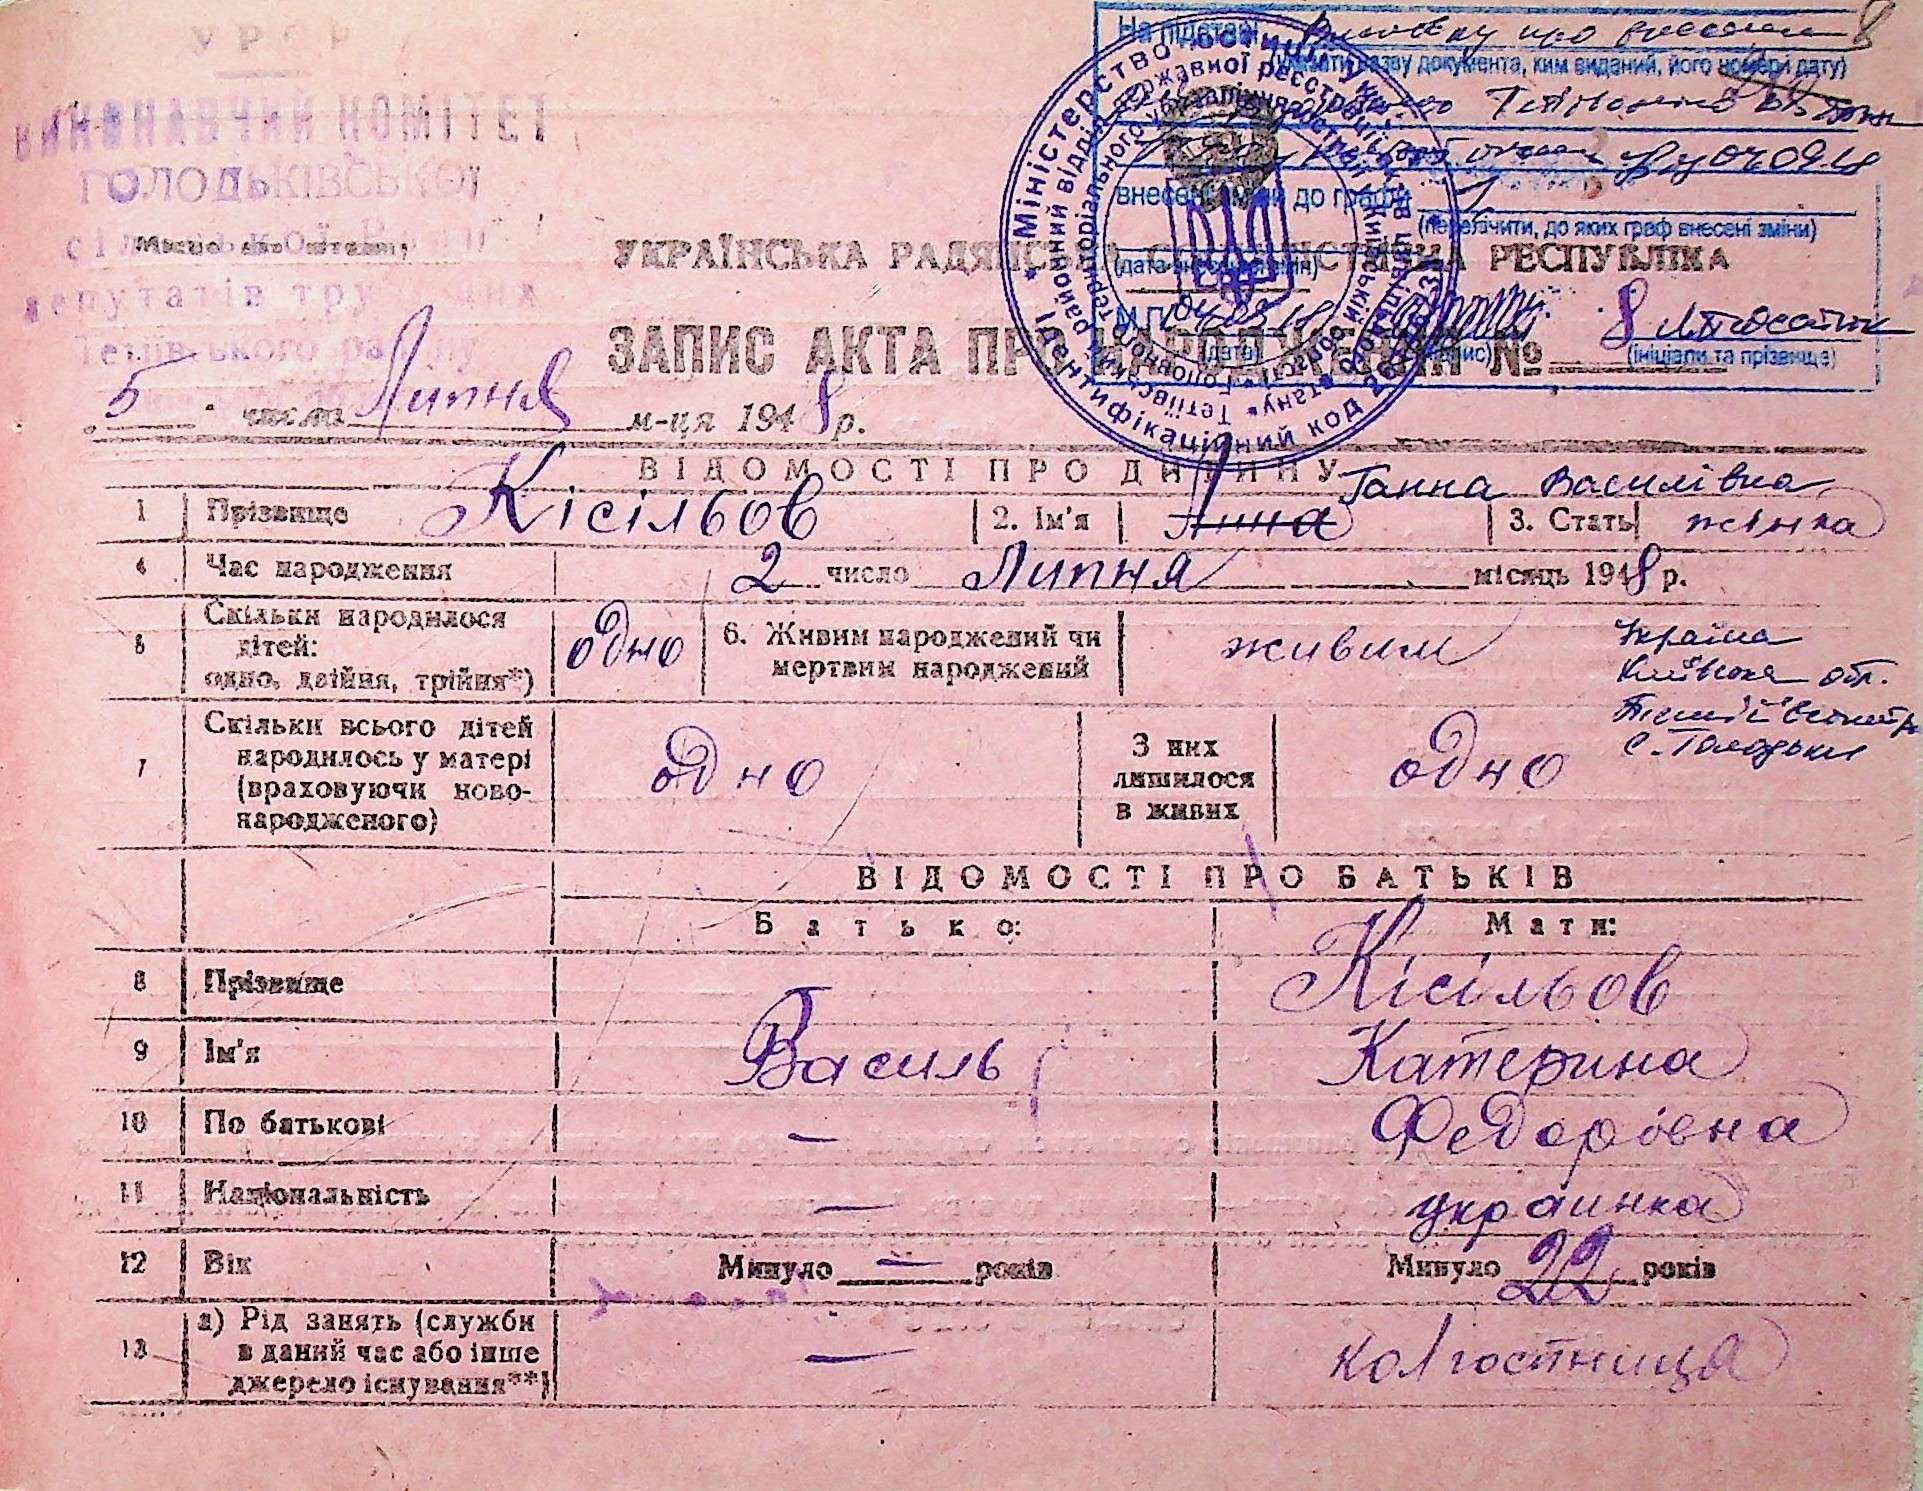 УРСР
ВИКОНАВЧИЙ КОМІТЕТ
ГОЛОДЬКІВСЬКОЇ
сільської Ради
депутатів трудящих
Тетіївського району
Місце для штампу
На підставі Висновку про внесення
(вказати назву документа, ким виданий, його номер і дату)
04.09.18
внесені зміни до графи 1
(перелічити, до яких граф внесені зміни)
(дата внесення змін)
М.П.
(дата) (підпис) (ініціали та прізвище)
* Міністерство юстиції України * Ідентифікаційний код
УКРАЇНСЬКА РАДЯНСЬКА СОЦІАЛІСТИЧНА РЕСПУБЛІКА
ЗАПИС АКТА ПРО НАРОДЖЕННЯ №
„5" число Липня м-ця 1948 р.
ВІДОМОСТІ ПРО ДИТИНУ
Ганна Василівна
1 Прізвище Кісільов 2. Ім'я Анна 3. Стать жінка
4 Час народження 2 число Липня місяць 1948 р.
5 Скільки народилося дітей: одно, двійня, трійня*) одно 6. Живим народжений чи мертвим народжений живим
Україна
Київська обл.
Тетіївський р-
с. Голодьки
7 Скільки всього дітей народилось у матері (враховуючи новонародженого) одно З них лишилося в живих одно
ВІДОМОСТІ ПРО БАТЬКІВ
Батько: Мати:
8 Прізвище Кісільов
9 Ім'я Василь Катерина
10 По батькові — Федорівна
11 Національність — украинка
12 Вік Минуло — років Минуло 22 років
13 а) Рід занять (служби в даний час або інше джерело існування**) — колгостница